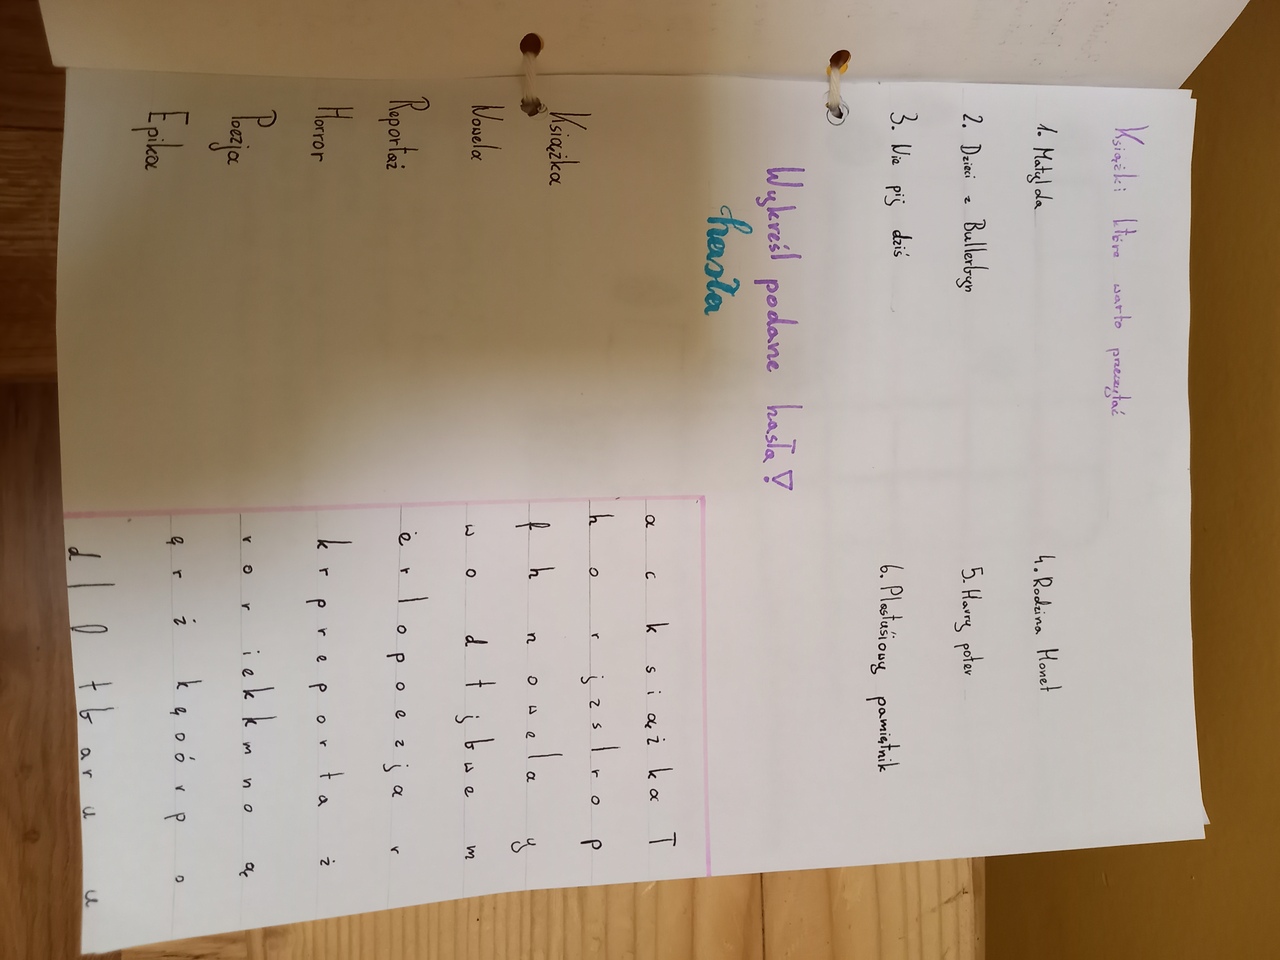 Książki które warto przeczytać
1. Matylda
4. Rodzina Monet
2. Dzieci z Bullerbyn
5. Harry poter
3. Nie pij dziś
6. Plastusiowy pamiętnik
Wykreśl podane hasła!
hasła
Książka
Nowela
Reportaż
Horror
Poezja
Epika
a c k s i ą ż k a ł
h o r j z s l r o p
f h n o w e l a y
w o d t j b w e m
ė r l o p o e z j a r
k r p r e p o r t a ż
r o r i e k k m n o ą
ę r ż k ę o ó r p o
d l f t b a r u u